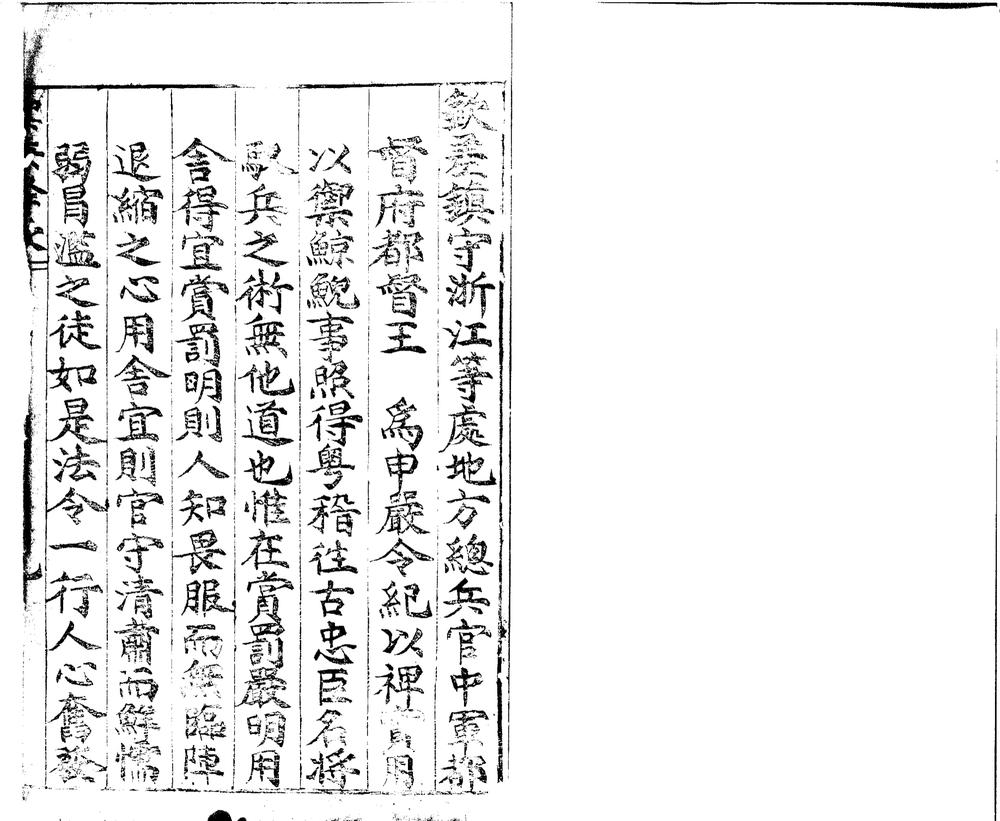 欽差鎮守浙江等處地方總兵官中軍都
督府都督王　爲申嚴令紀以裨實用
以禦鯨鯢事照得粤稽往古忠臣名將
馭兵之術無他道也惟在賞罰嚴明用
舍得宜賞罰明則人知畏服而無臨陣
退縮之心用舍宜則官守清肅而鮮懦
弱冒濫之徒如是法令一行人心奮發